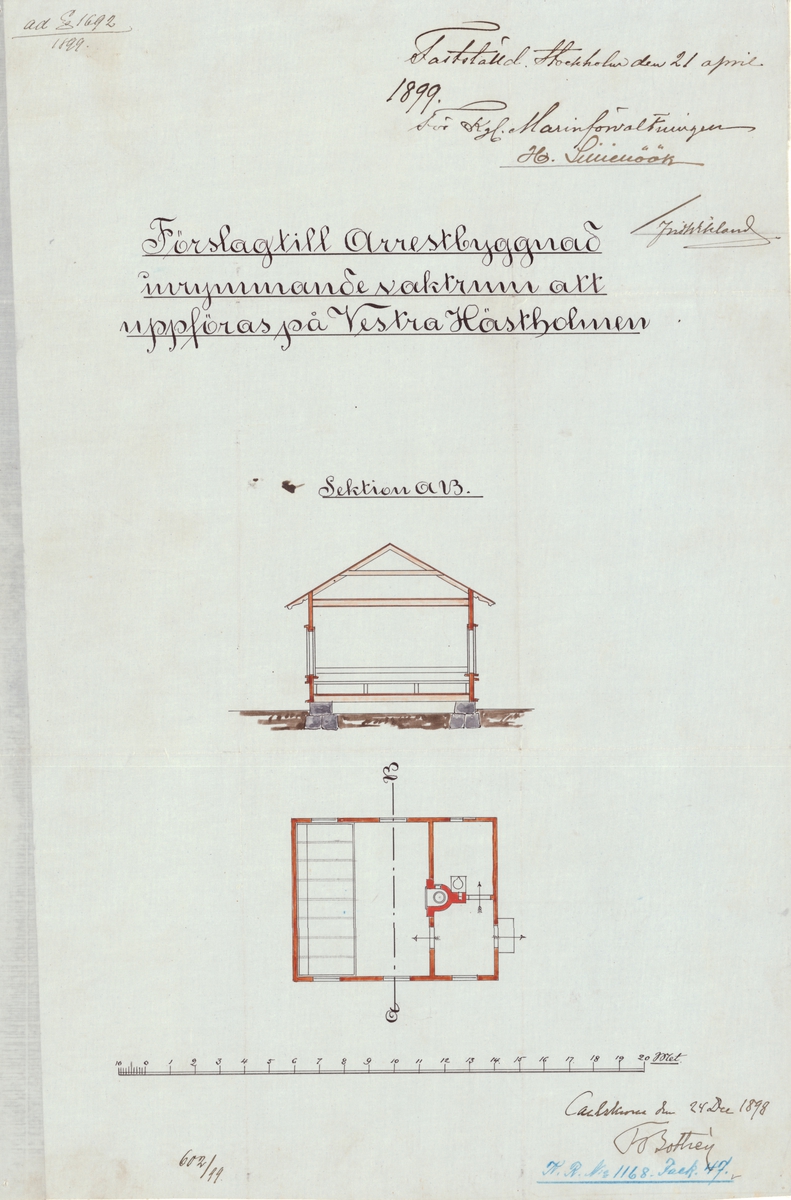 ad § 1692
1899.
Fastställd. Stockholm den 21 april
1899.
För Kgl. Marinförvaltningen
H. Lilliehöök
Förslag till Arrestbyggnad
inrymmande vaktrum att
uppföras på Vestra Hästholmen
Sektion AB.
B
A
10 0 1 2 3 4 5 6 7 8 9 10 11 12 13 14 15 16 17 18 19 20 Met.
Carlskrona den 24 Dec 1898
602/99
K. R. No 1168. Pack. 47.